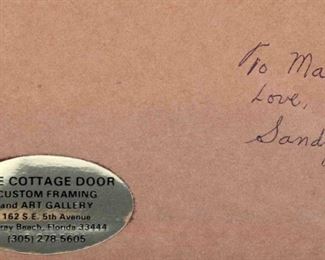 To Ma
Love,
Sandy
E COTTAGE DOOR
CUSTOM FRAMING
and ART GALLERY
162 S.E. 5th Avenue
ray Beach, Florida 33444
(305) 278-5605